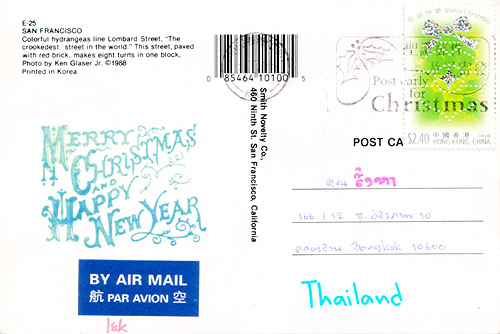 E-25
SAN FRANCISCO
Colorful hydrangeas line Lombard Street, "The
crookedest street in the world." This street, paved
with red brick, makes eight turns in one block.
Photo by Ken Glaser Jr. ©1988
Printed in Korea
0 85464 10100 5
Smith Novelty Co.,
460 Ninth St. San Francisco, California
Post early
for
Christmas
Merry Christmas
$2.40
中國香港
HONG KONG, CHINA
POST CA
MERRY
CHRISTMAS
AND
HAPPY
NEW YEAR
คุณ
166/12 ซ.
10
คลองสาน Bangkok 10600
Thailand
BY AIR MAIL
航 PAR AVION 空